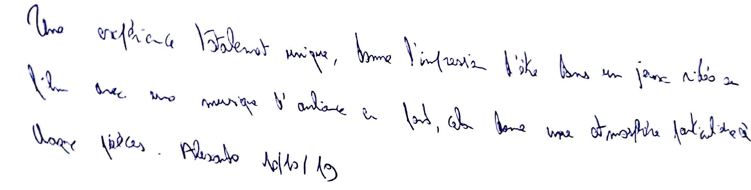 Une expérience totalement unique, donne l'impression d'être dans un jeux vidéo ou
film avec une musique d'ambiance en fond, cela donne une atmosphère particulière à
chaque pièces. 10/10/19